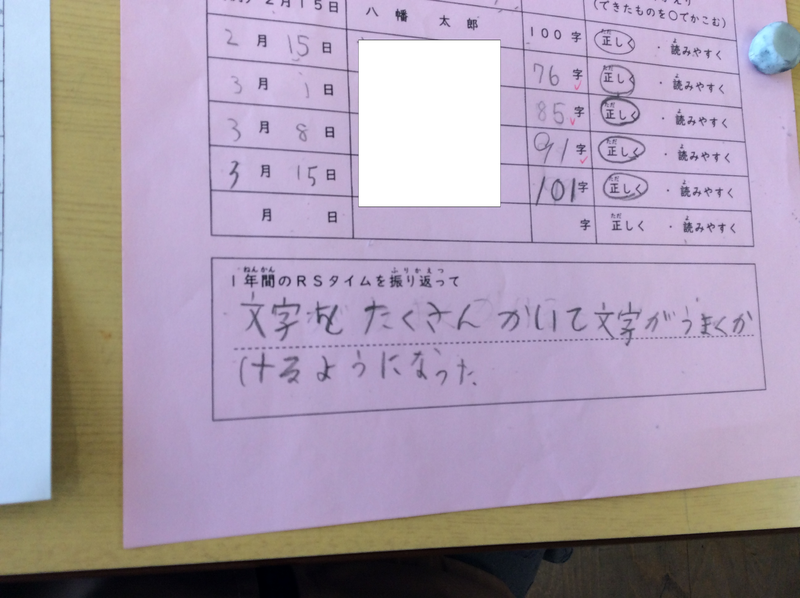 2月15日 八幡 太郎 100字 (できたものを○でかこむ)
2月15日 正しく ・ 読みやすく
3月1日 76字 正しく ・ 読みやすく
3月8日 85字 正しく ・ 読みやすく
3月15日 91字 正しく ・ 読みやすく
101字 正しく ・ 読みやすく
月 日 字 正しく ・ 読みやすく
1年間のRSタイムを振り返って
文字をたくさんかいて文字がうまくか
けるようになった。